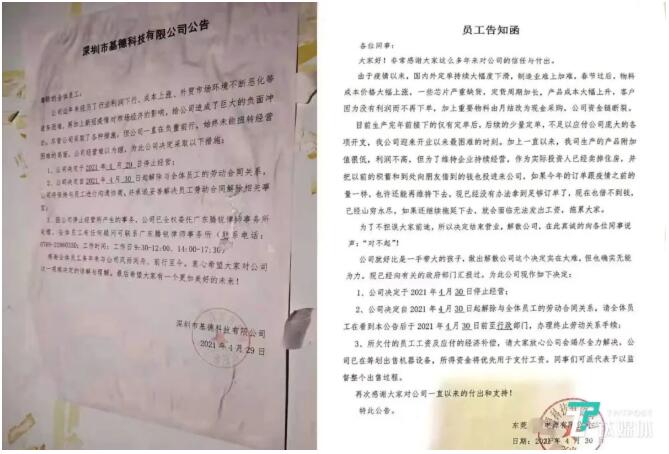 深圳市基德科技有限公司公告
尊敬的全体员工：
公司近年来经历了行业利润下行、成本上涨、外贸市场环境不断恶化等
诸多困难，再加上新冠疫情对市场经济的影响，给公司造成了巨大的负面冲
击。尽管公司采取了各种措施，但公司一直在负重前行，始终未能扭转经营
困难的局面。公司经营难以为继，为此公司决定采取以下措施：
1、公司决定于 2021 年 4 月 29 日停止经营；
2、公司决定自 2021 年 4 月 30 日起解除与全体员工的劳动合同关系，
公司将依法与员工进行沟通协商，并承诺妥善解决员工劳动合同解除相关事
宜；
3、因公司停止经营所产生的事务，公司已全权委托广东腾锐律师事务所
处理。全体员工有任何疑问可联系广东腾锐律师事务所（联系电话：
工作时间：工作日9:30-12:00，14:00-17:30）。
感谢全体员工多年来与公司风雨同舟、前行至今。衷心希望大家对公司
这一艰难决定的谅解与理解。最后希望大家有一个更加美好的未来！
深圳市基德科技有限公司
2021 年 4 月 29 日
员工告知函
各位同事：
大家好！非常感谢大家这么多年来对公司的信任与付出。
由于疫情以来，国内外定单持续大幅度下滑，制造业难上加难。春节过后，物料
成本价格大幅上涨，一些芯片严重缺货，交货周期加长，产品成本大幅上升，客户
因为没有利润而不再下单，加上重要物料由月结改为现金采购，公司资金链断裂。
目前生产完年前接下的仅有定单后，后续的少量定单，不足以应付公司庞大的各
项开支，我公司迎来开业以来最困难的时刻。加上一直以来，我司生产的产品附加
值很低，利润不高，但为了维持企业持续经营，作为实际投资人已经卖掉住房，并
把以前的积蓄和到处向朋友借到的钱也投进来公司，如果今年的订单跟疫情之前的
量一样，也许还能再维持下去，现已经没有办法拿到足够订单了，现在也借不到钱，
已经山穷水尽，如果还继续拖延下去，就会面临无法发出工资，拖累大家。
为了不耽误大家前途，所以决定结束营业，解散公司，在此真诚的向各位同事说
声：“对不起”！
公司就好比是一手带大的孩子，做出解散公司这个决定实在太难，但也确实无能
为力，现已经向有关的政府部门汇报过，为此公司现作如下决定：
1、公司决定于 2021 年 4 月 30 日停止经营；
2、公司决定自 2021 年 4 月 30 日起解除与全体员工的劳动合同关系，请全体员
工在看到本公告后于 2021 年 4 月 30 日前至行政部门，办理终止劳动关系手续；
3、所欠付的员工工资及应付的经济补偿，请大家放心公司会竭尽全力解决，公
司已在筹划出售机器设备，所得资金将优先用于支付工资。同事们可派代表予以监
督整个出售过程。
再次感谢大家对公司一直以来的付出和支持！
特此公告。
东莞
有限公司
日期：2021 年 4 月 30 日
钛媒体